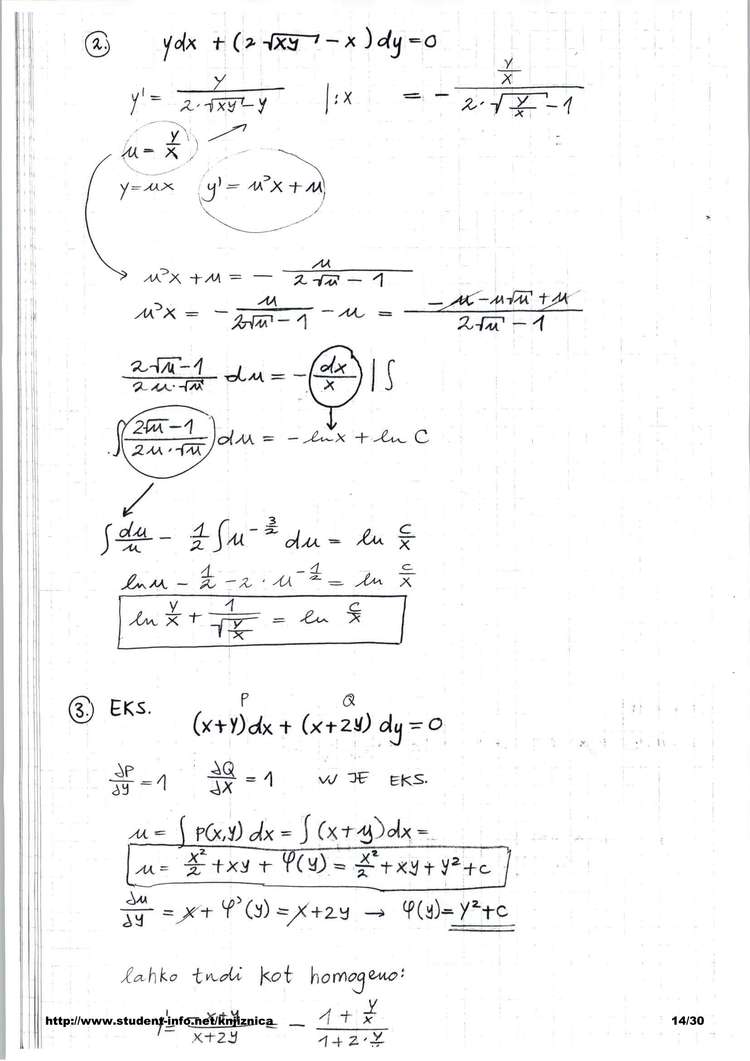 2. ydx + (2√xy - x)dy = 0
y' = y / (2·√xy - y) |:x = - (y/x) / (2·√(y/x) - 1)
u = y/x
y = ux y' = u'x + u
u'x + u = - u / (2√u - 1)
u'x = - u / (2√u - 1) - u = (-u - u√u + u) / (2√u - 1)
(2√u - 1) / (2u·√u) du = - dx/x | ∫
∫ (2√u - 1) / (2u·√u) du = - ln x + ln C
∫ du/u - 1/2 ∫ u^(-3/2) du = ln C/x
ln u - 1/2 - 2 · u^(-1/2) = ln C/x
ln y/x + 1/√(y/x) = ln C/x
3. EKS. P Q
(x+y)dx + (x+2y) dy = 0
∂P/∂y = 1 ∂Q/∂x = 1 JE EKS.
u = ∫ P(x,y) dx = ∫ (x+y)dx =
u = x²/2 + xy + φ(y) = x²/2 + xy + y² + c
∂u/∂y = x + φ'(y) = x + 2y → φ(y) = y² + c
lahko tudi kot homogeno:
y' = - (x+y) / (x+2y) = - (1 + y/x) / (1 + 2·y/x)
http://www.student-info.net/knjiznica 14/30